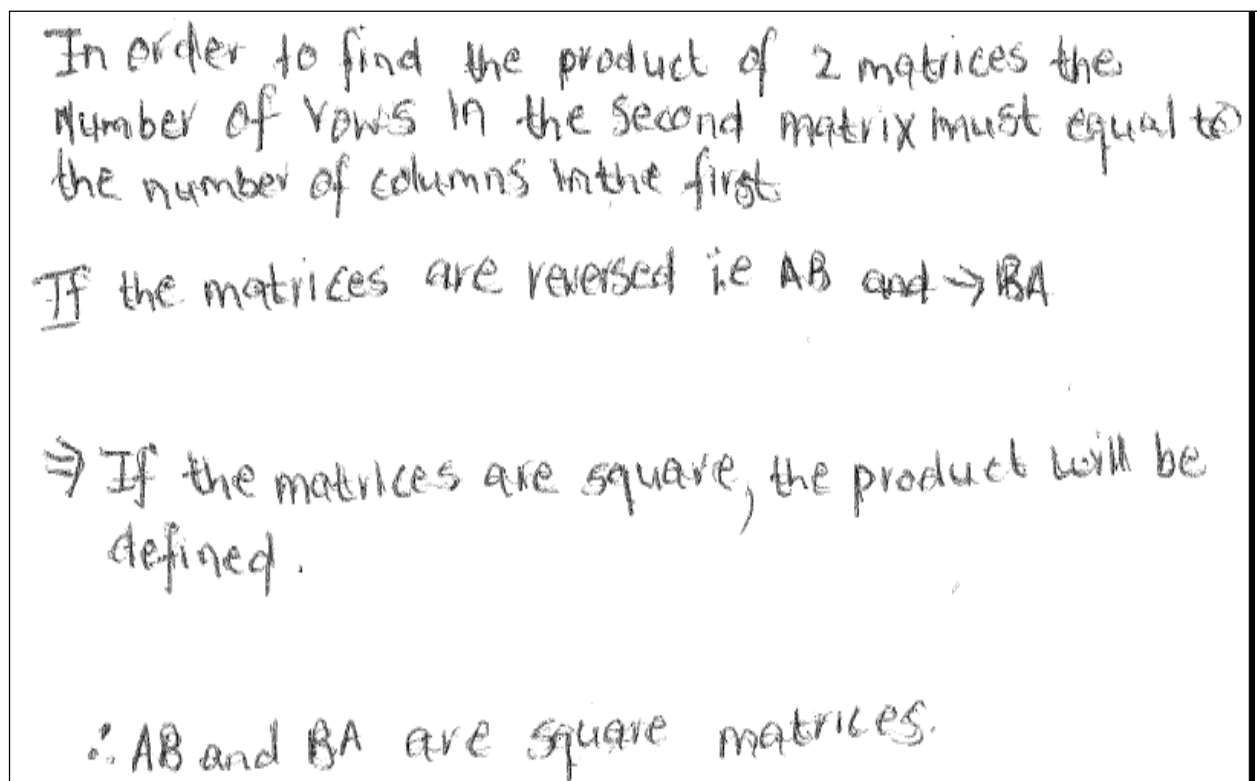 In order to find the product of 2 matrices the
Number of rows in the second matrix must equal to
the number of columns in the first.
If the matrices are reversed i.e AB and → BA
⇒ If the matrices are square, the product will be
defined.
∴ AB and BA are square matrices.